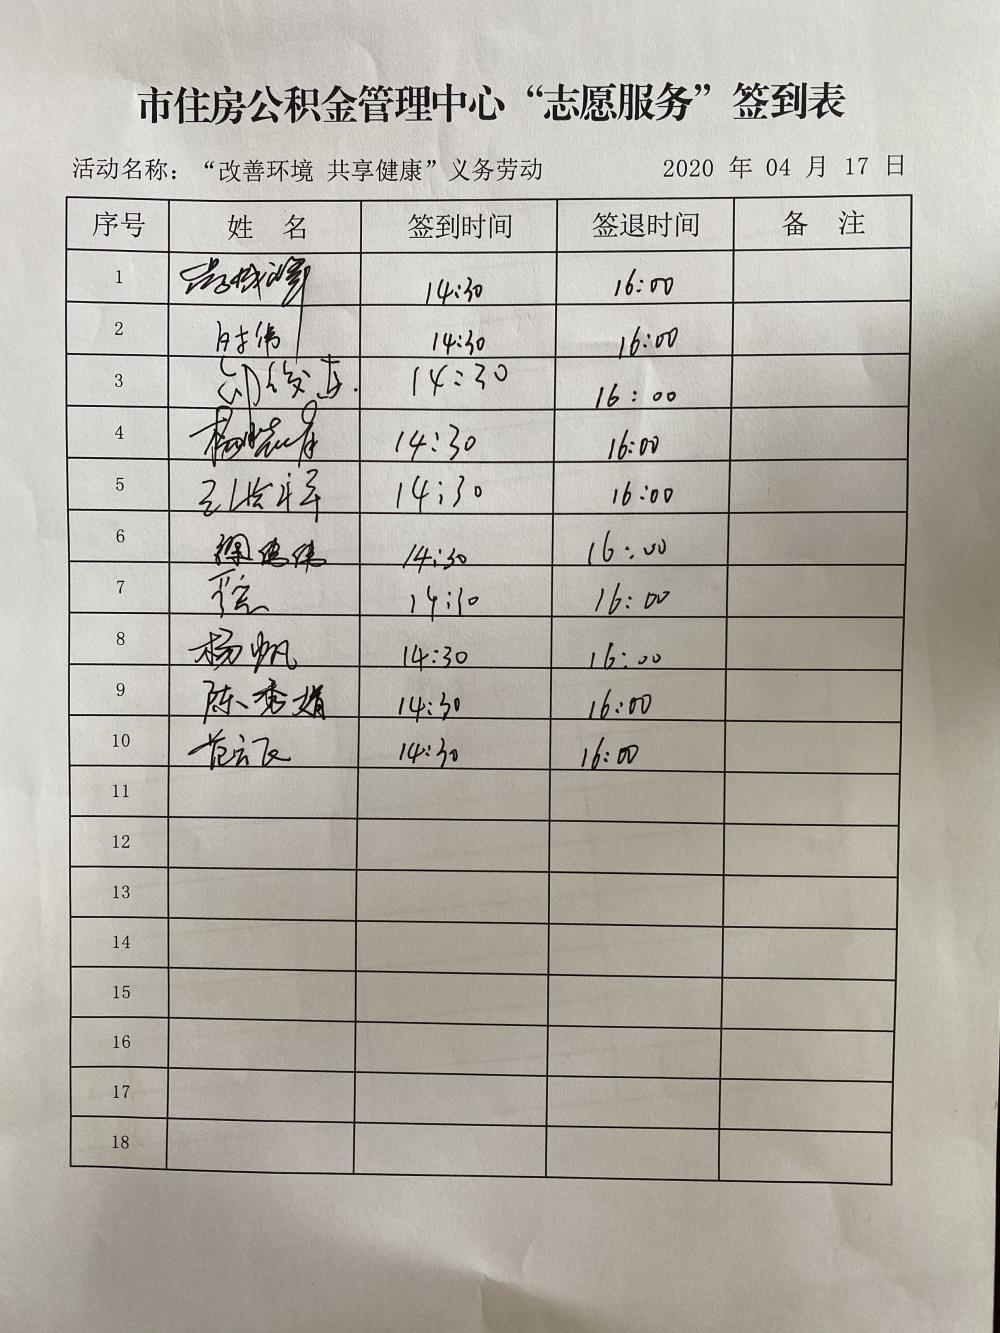 市住房公积金管理中心“志愿服务”签到表
活动名称：“改善环境 共享健康”义务劳动 2020 年 04 月 17 日
序号 姓 名 签到时间 签退时间 备 注
1 14:30 16:00
2 时伟 14:30 16:00
3 14:30 16:00
4 杨晓君 14:30 16:00
5 14:30 16:00
6 徐德伟 14:30 16:00
7 14:30 16:00
8 杨帆 14:30 16:00
9 陈秀娟 14:30 16:00
10 范云飞 14:30 16:00
11
12
13
14
15
16
17
18